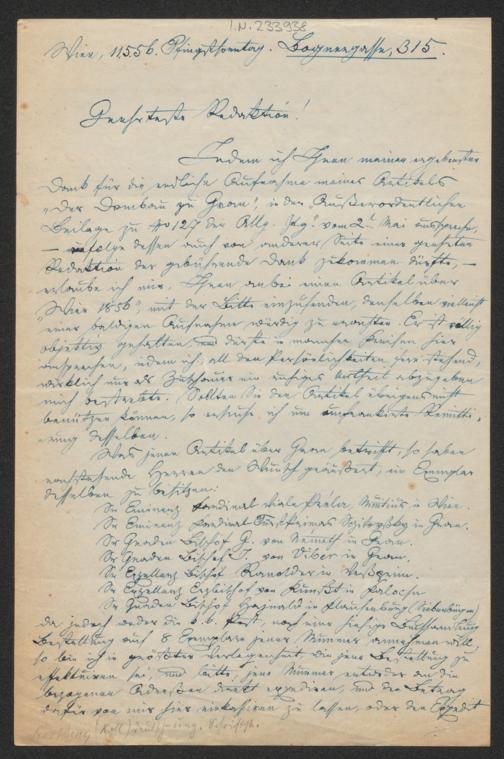 I.N. 233938
Wien, 11.5.56. Pfingstsonntag. Bognergasse, 315.
Geehrteste Redaktion!
Indem ich Ihnen meinen ergebensten
Dank für die endliche Aufnahme meines Artikels
„Der Dombau zu Gran", in der Außerordentlichen
Beilage zu No 127 der Allg. Ztg. vom 2t Mai ausspreche,
— infolge dessen auch von anderer Seite einer geehrten
Redaktion der gebührende Dank zukommen dürfte, —
erlaube ich mir, Ihnen anbei einen Artikel über
„Wien 1856", mit der Bitte einzusenden, denselben vielleicht
einer baldigen Aufnahme würdig zu erachten. Er ist völlig
objektiv gehalten und dürfte in manchen Kreisen hier
ansprechen, indem ich, all den Persönlichkeiten ferne stehend,
wirklich nur als Zuschauer ein ruhiges Urtheil abzugeben
mich bestrebte. Sollten Sie den Artikel übrigens nicht
benützen können, so ersuche ich um unfrankirte Remitti-
rung desselben.
Was jenen Artikel über Gran betrifft, so haben
nachstehende Herren den Wunsch geäußert, ein Exemplar
desselben zu besitzen:
Se Eminenz Kardinal Viale Prela, Nuntius in Wien.
Se Eminenz Kardinal Fürst Primas Scitovsky in Gran.
Se Gnaden Bischof G. von Nemeth in Gran.
Se Gnaden Bischof J. von Viber in Gran.
Se Exzellenz Bischof Ranolder in Veßprim.
Se Exzellenz Erzbischof von Kunszt in Kalocsa
Se Gnaden Bischof Haynald in Klausenburg (Siebenbürgen)
da jedoch weder die k.k. Post, noch eine hiesige Buchhandlung
Bestellung auf 8 Exemplare jener Nummer annehmen will,
so bin ich in größter Verlegenheit die jene Bestellung zu
effektuiren sei, und bitte, jene Nummer entweder an die
bezogenen Adressen direkt expediren, und den Betrag
dafür von mir hier einkassiren zu lassen, oder der Expedit